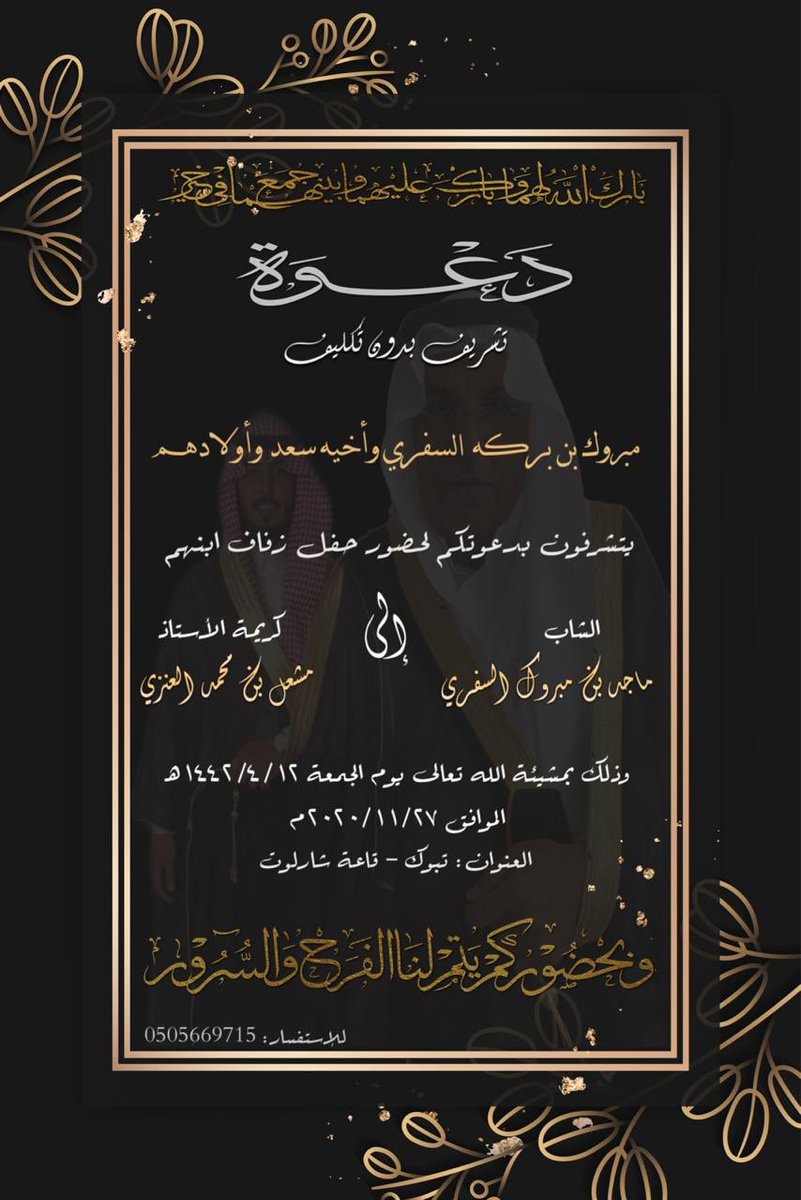 بارك الله لهما وبارك عليهما وجمع بينهما في خير
دعوة
تشريف بدون تكليف
مبروك بن بركه السفري وأخيه سعد وأولادهم
يتشرفون بدعوتكم لحضور حفل زفاف ابنهم
الشاب إلى كريمة الأستاذ
ماجد بن مبروك السفري مشعل بن محمد العنزي
وذلك بمشيئة الله تعالى يوم الجمعة ١٤٤٢/٤/١٢هـ
الموافق ٢٠٢٠/١١/٢٧م
العنوان: تبوك - قاعة شارلوت
وبحضوركم يتم لنا الفرح والسُّرور
للإستفسار: 0505669715